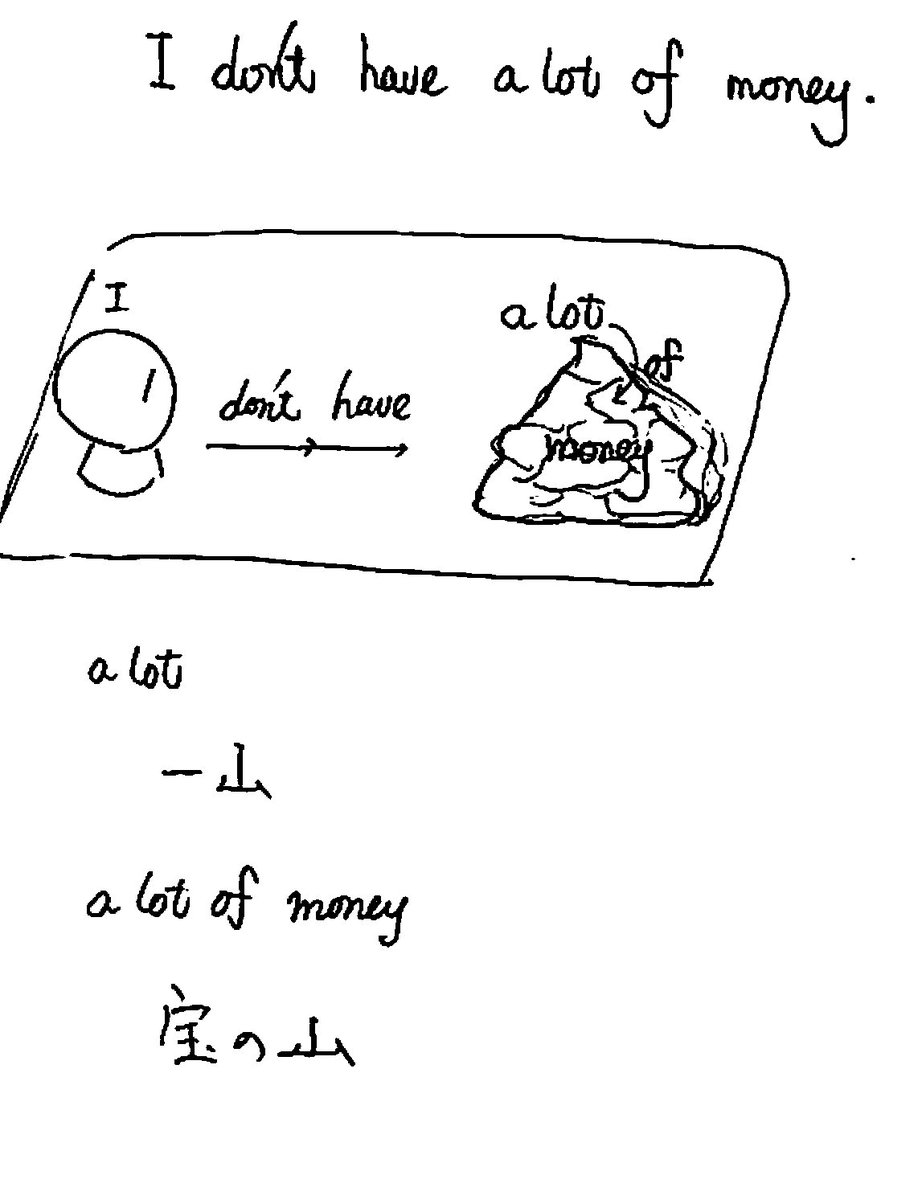 I don't have a lot of money.
I
a lot
of
don't have
money
a lot
一山
a lot of money
宝の山